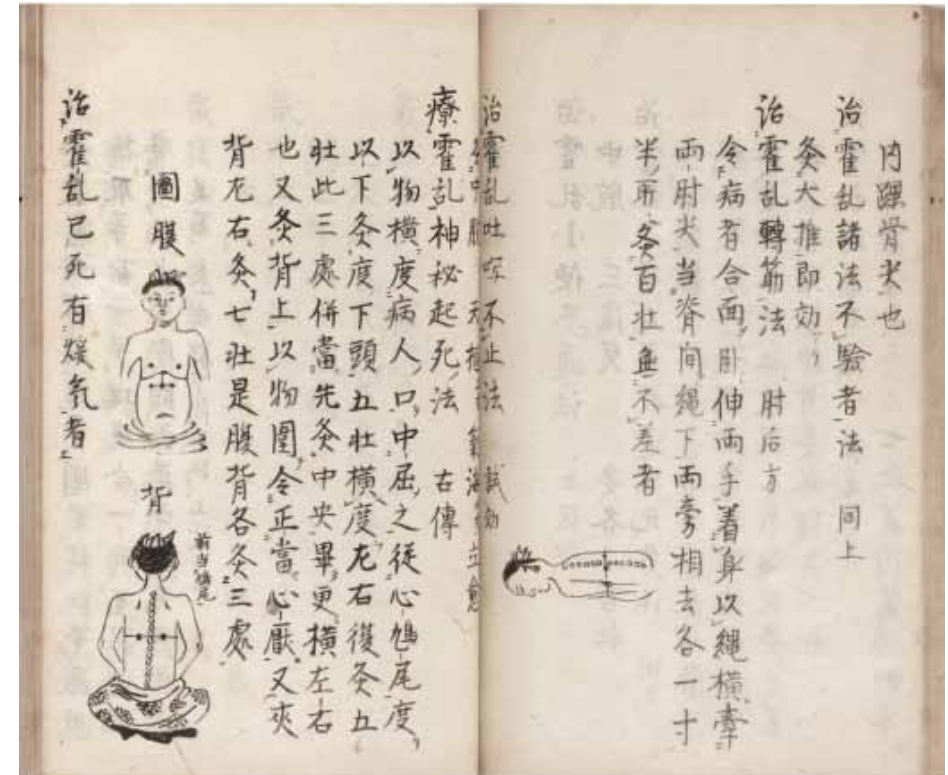 内踝骨尖也
治霍乱諸法不驗者法 同上
灸大推即効
治霍乱轉筋法 肘后方
令病者合面卧伸両手着身以縄横牽
両肘尖当脊间縄下両旁相去各一寸
半所灸百壮無不差者
治霍乱吐 不止法
療霍乱神秘起死法 古傳
以物横度病人口中屈之従心鳩尾度
以下灸度下頭五壮横度左右復灸五
壮此三處併當先灸中央畢更横左右
也又灸背上以物圍令正當心厭又夾
背左右灸七壮是腹背各灸三處
圖腹
背
前当鳩尾
治霍乱已死有煖氣者